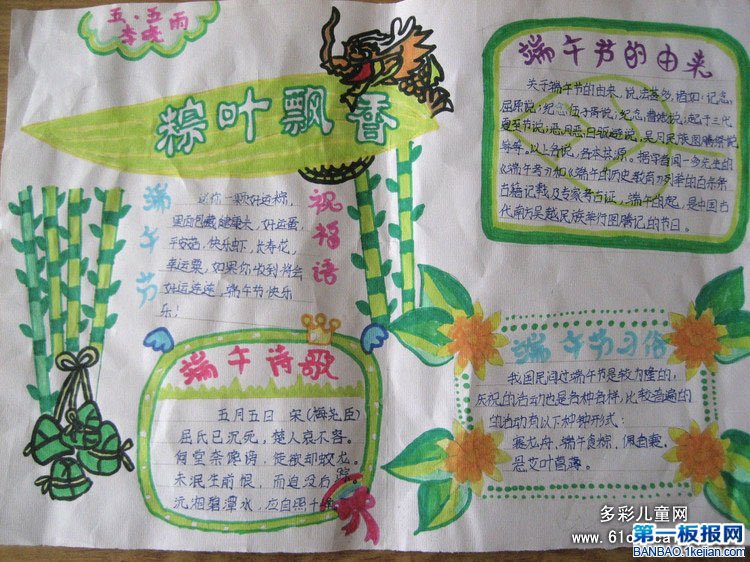 五·五
李晓雨
粽叶飘香
端午节
祝福语
送你一颗好运粽,
里面包藏健康米,好运蛋,
平安菇,快乐虾,长寿花,
幸运粟,如果你收到将会
好运连连,端午节快乐
乐!
端午诗歌
五月五日 宋(梅尧臣
屈氏已沉死,楚人哀不容。
何尝奈谗谤,徒欲却蛟龙。
未泯生前恨,而追没后踪。
沅湘碧潭水,应自照千
端午节的由来
关于端午节的由来,说法甚多,诸如:记念
屈原说;纪念伍子胥说;纪念曹娥说;起于三代
夏至节说;恶月恶日驱避说,吴月民族图腾祭说
等等。以上各说,各本其源。据学者闻一多先生的
《端午考》和《端午的历史教育》列举的百余条
古籍记载及专家考古证,端午的起,是中国古
代南方吴越民族举行图腾记的节日。
端午节习俗
我国民间过端午节是较为隆的,
庆祝的活动也是各种各样,比较普遍的
的活动有以下种种形式:
赛龙舟,端午食粽,佩香囊,
悬艾叶菖蒲。
多彩儿童网
www.61
第一板报网
BANBAO.1kejian.com